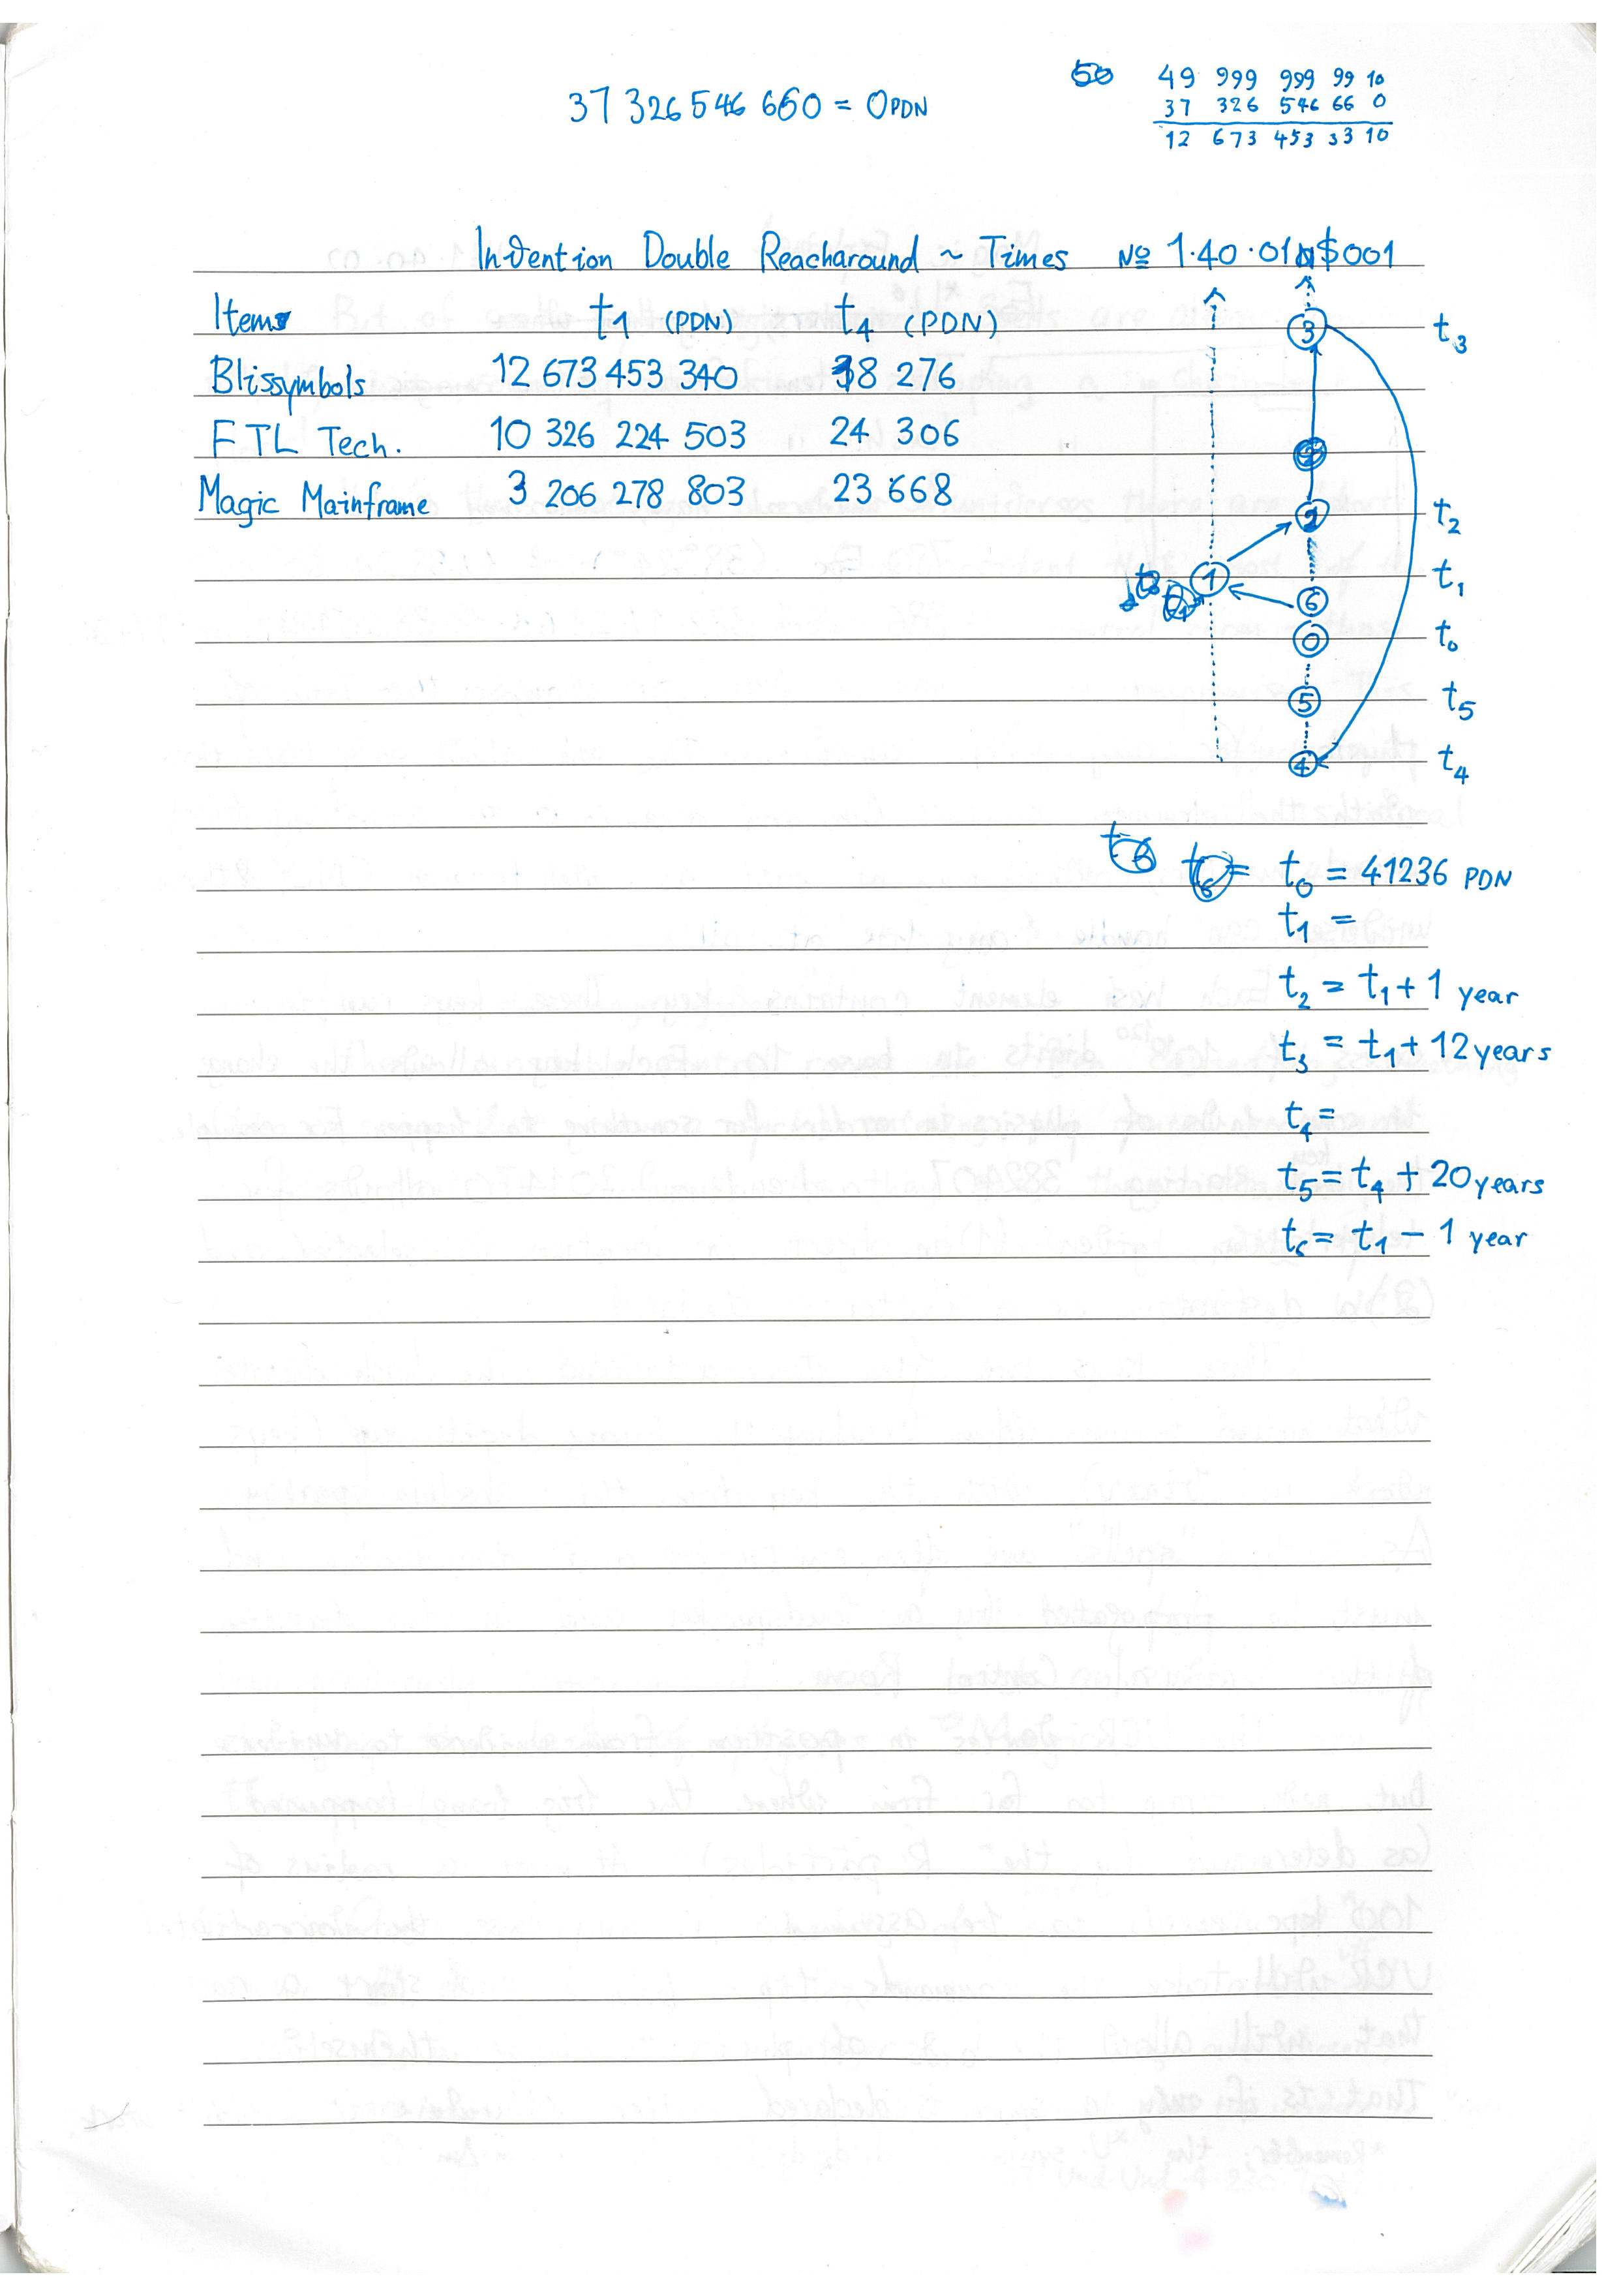 50 49 999 999 99 10
37 326 546 660 = 0PDN
37 326 546 66 0
12 673 453 33 10
Invention Double Reacharound ~ Times № 1.40.01 $001
Items t1 (PDN) t4 (PDN)
Blissymbols 12 673 453 340 38 276
FTL Tech. 10 326 224 503 24 306
Magic Mainframe 3 206 278 803 23 668
3 t3
2 t2
1 t1
6
0 t0
5 t5
4 t4
t0 = 41236 PDN
t1 =
t2 = t1 + 1 year
t3 = t1 + 12 years
t4 =
t5 = t4 + 20 years
t6 = t1 - 1 year